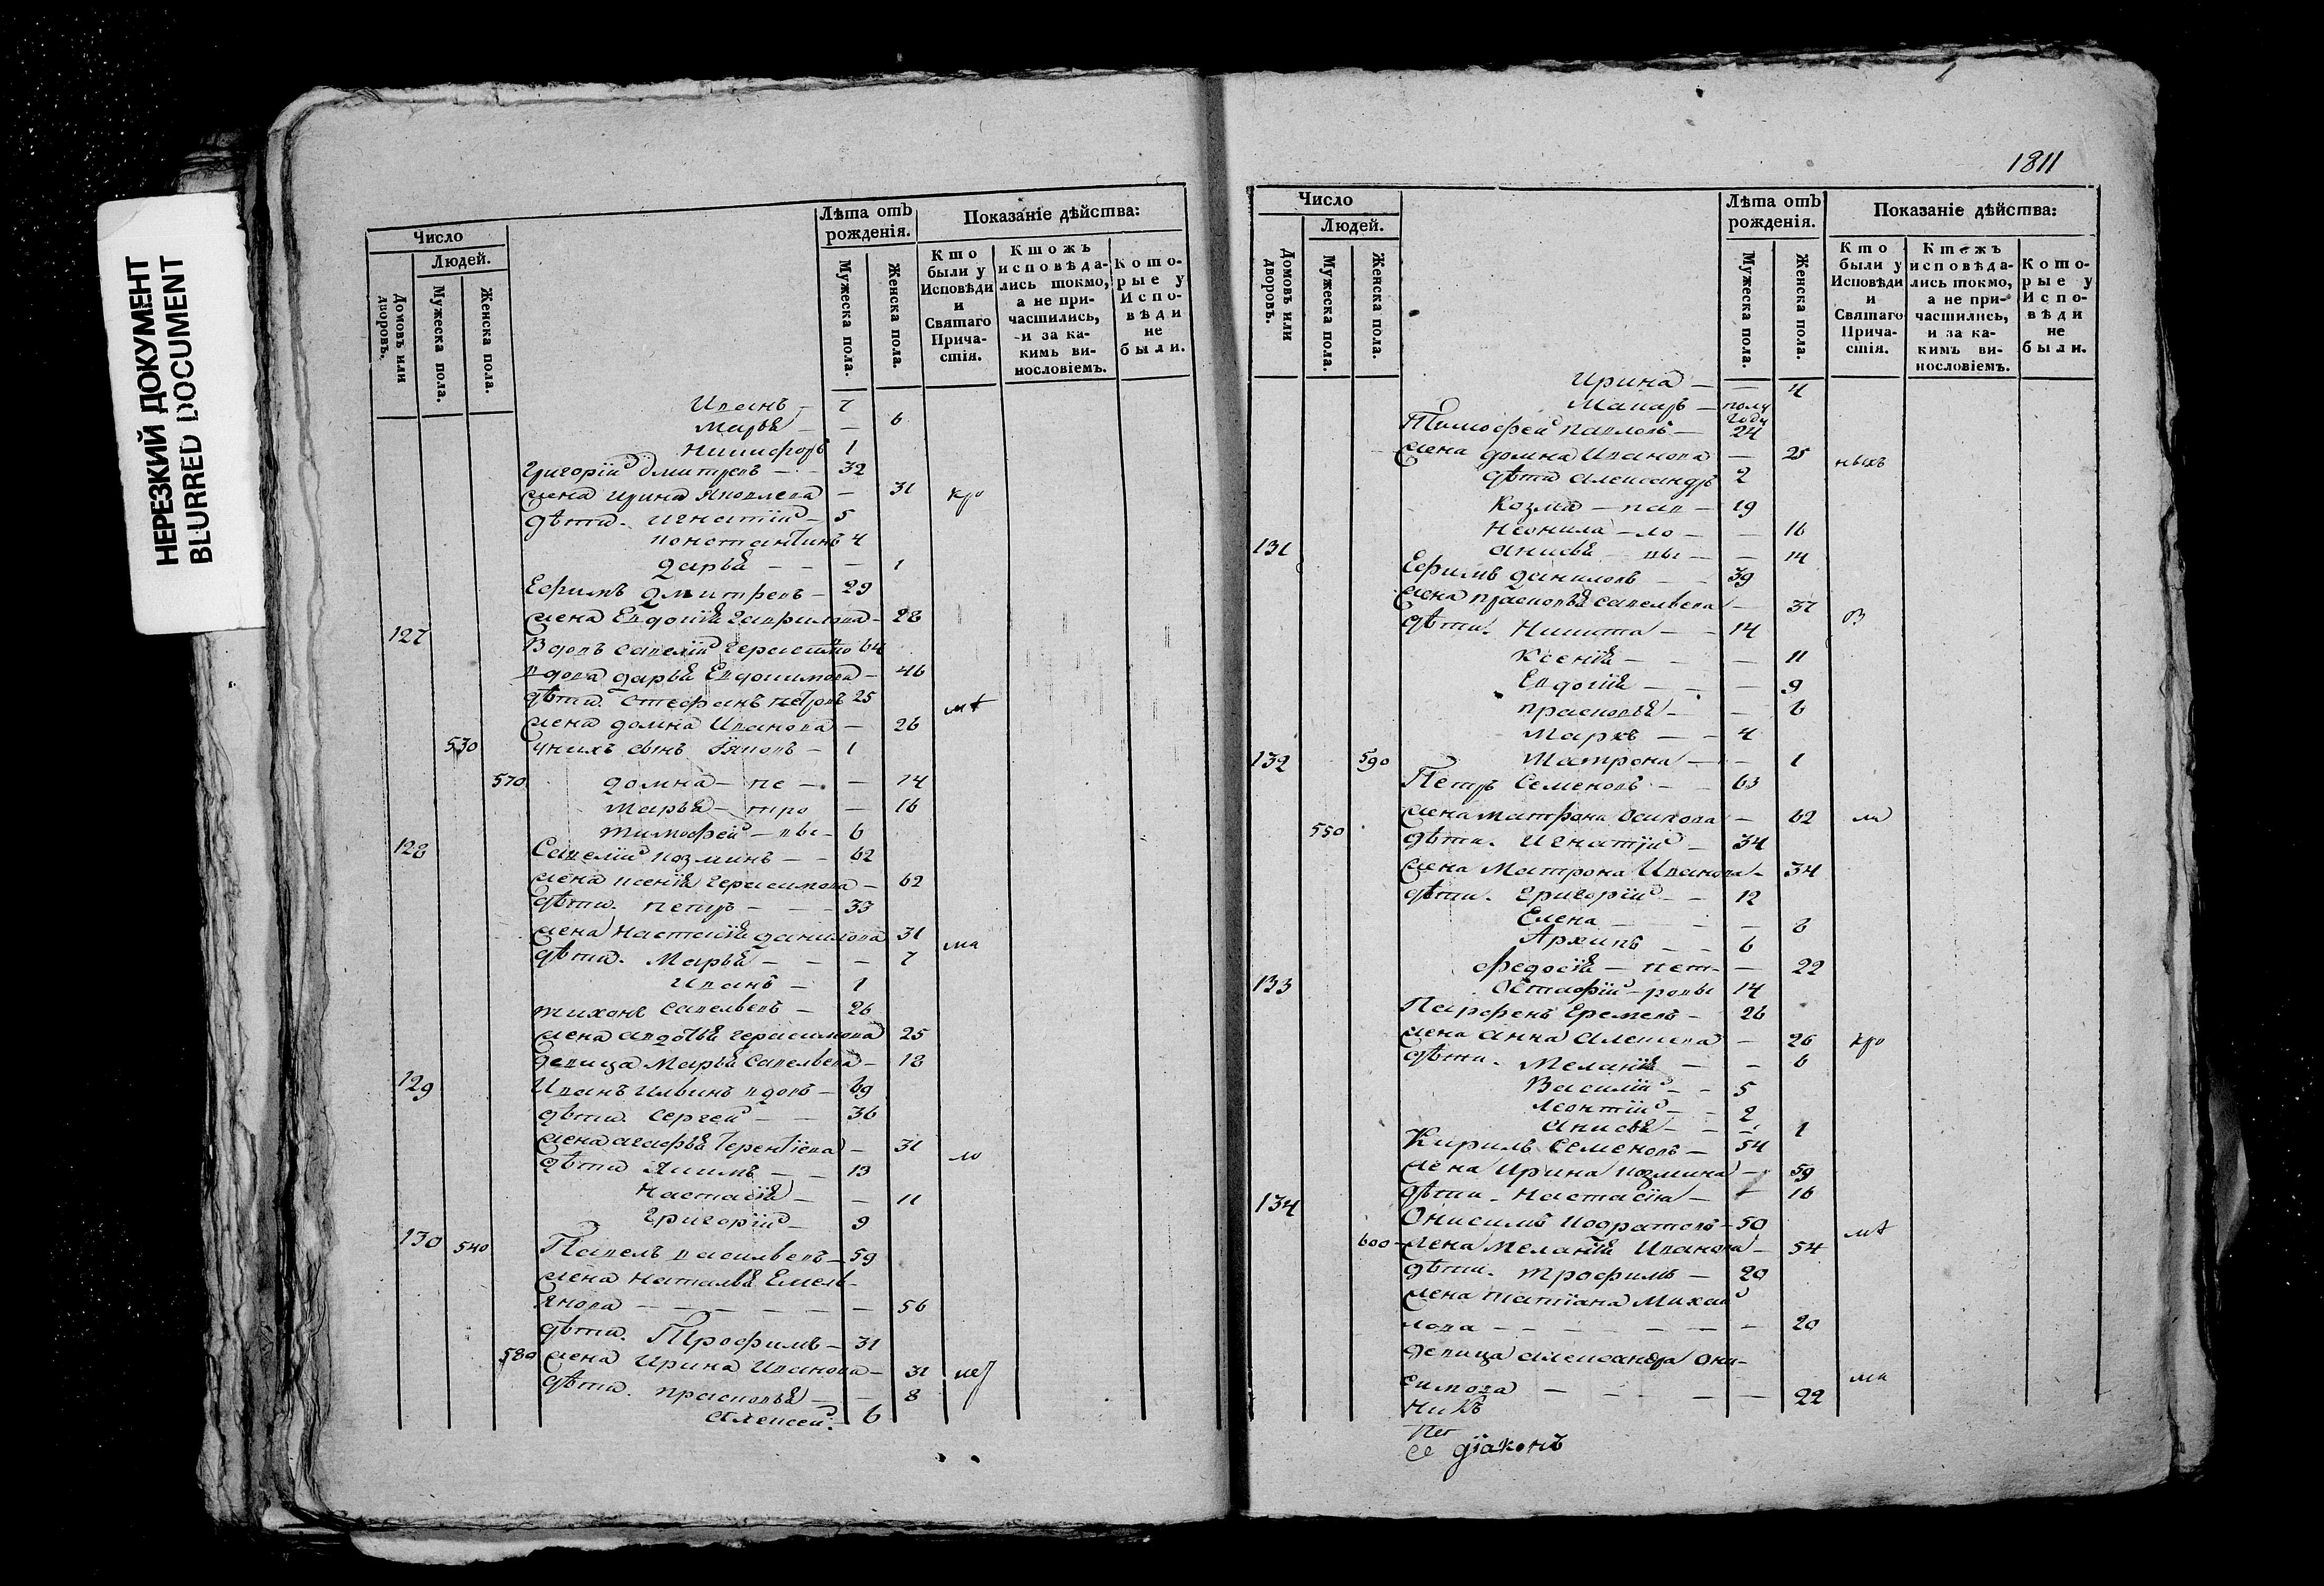 НЕРЕЗКИЙ ДОКУМЕНТ
BLURRED DOCUMENT
Число
Людей.
Домовъ или дворовъ.
Мужеска пола.
Женска пола.
Лѣта отъ рожденія.
Мужеска пола.
Женска пола.
Показаніе дѣйства:
Кто были у Исповѣди и Святаго Причастія.
Ктожъ исповѣдались токмо, а не причастились, и за какимъ винословіемъ.
Которые у Исповѣди не были.
Иванъ – 7
Марья – — 6
Никифоръ 1
Григорій Дмитревъ – – 32
жена Ирина Яковлева – 31 кро
дѣти. Игнатій – 5
Константинъ 4
Дарья – – — 1
Ефимъ Дмитревъ – 29
жена Евдокія Гаврилова – 28
127
Вдовъ Савелій Герасимо 64
вдова Дарья Евдокимова – 46
дѣти. Стефанъ Петровъ 25 мѣ
жена Домна Иванова – 26
530 у нихъ сынъ Яковъ – 1
570 Домна – пе – — 14
Марья – тро — 16
Тимофей – вы – 6
128 Савелій Козминъ – – 62
жена Ксенія Герасимова – 62
дѣти. Петръ – – – 33
жена Настасія Данилова 31
дѣти. Марья – – — 7 ма
Иванъ – 1
Тихонъ Савельевъ – 26
жена Авдотья Герасимова 25
девица Марья Савельева – 18
129 Иванъ Ильинъ вдовъ – 69
дѣти. Сергей – – 36
жена Агафья Терентіева – 31 ло
дѣти Якимъ – – 13
Настасія – — 11
Григорій – 9
130 540 Павелъ Васильевъ – 59
жена Наталья Емель-
янова – – – – – — 56
дѣти. Трофимъ – 31
580 жена Ирина Иванова – 31
дѣти. Прасковья – — 8
Алексей. – 6
1811
Число
Людей.
Домовъ или дворовъ.
Мужеска пола.
Женска пола.
Лѣта отъ рожденія.
Мужеска пола.
Женска пола.
Показаніе дѣйства:
Кто были у Исповѣди и Святаго Причастія.
Ктожъ исповѣдались токмо, а не причастились, и за какимъ винословіемъ.
Которые у Исповѣди не были.
Ирина – — 4
Макаръ – полу году
Тимофей Павловъ – 24
жена Домна Иванова – 25 ныхъ
дѣти Александръ 2
Козма – пав – 19
Неонила – ло – — 16
131 Анисья – вы – — 14
Ефимъ Даниловъ – – 39
жена Прасковья Савельева – 37
дѣти. Никита – – 14 В
Ксенія – – — 11
Евдокія – – — 9
Прасковья – — 6
Марко – – 4
132 590 Матрона – — 1
Петръ Семеновъ – – 63
жена Матрона Осипова – 62 ла
550 дѣти. Игнатій – 34
жена Матрона Иванова – 34
дѣти. Григорій – – 12
Елена – – — 8
Архипъ – – 6
Федосія – пет – — 22
133 Остафій – ровы 14
Парфенъ Еремевъ – 26
жена Анна Алексева – 26 кро
дѣти. Меланія – – 6
Василій – – 5
Леонтій – – 2
Анисья – – — 1
Кирилъ Семеновъ – 54
жена Ирина Козмина – 59
134 дѣти. Настасія – — 16
Онисимъ Кодратовъ – 50 мѣ
600 жена Меланія Иванова – 54
дѣти. Трофимъ – 20
жена Татіана Михай
лова – – – – – — 20
девица Александра Они-
симова – – – – — 22 ма
діаконъ